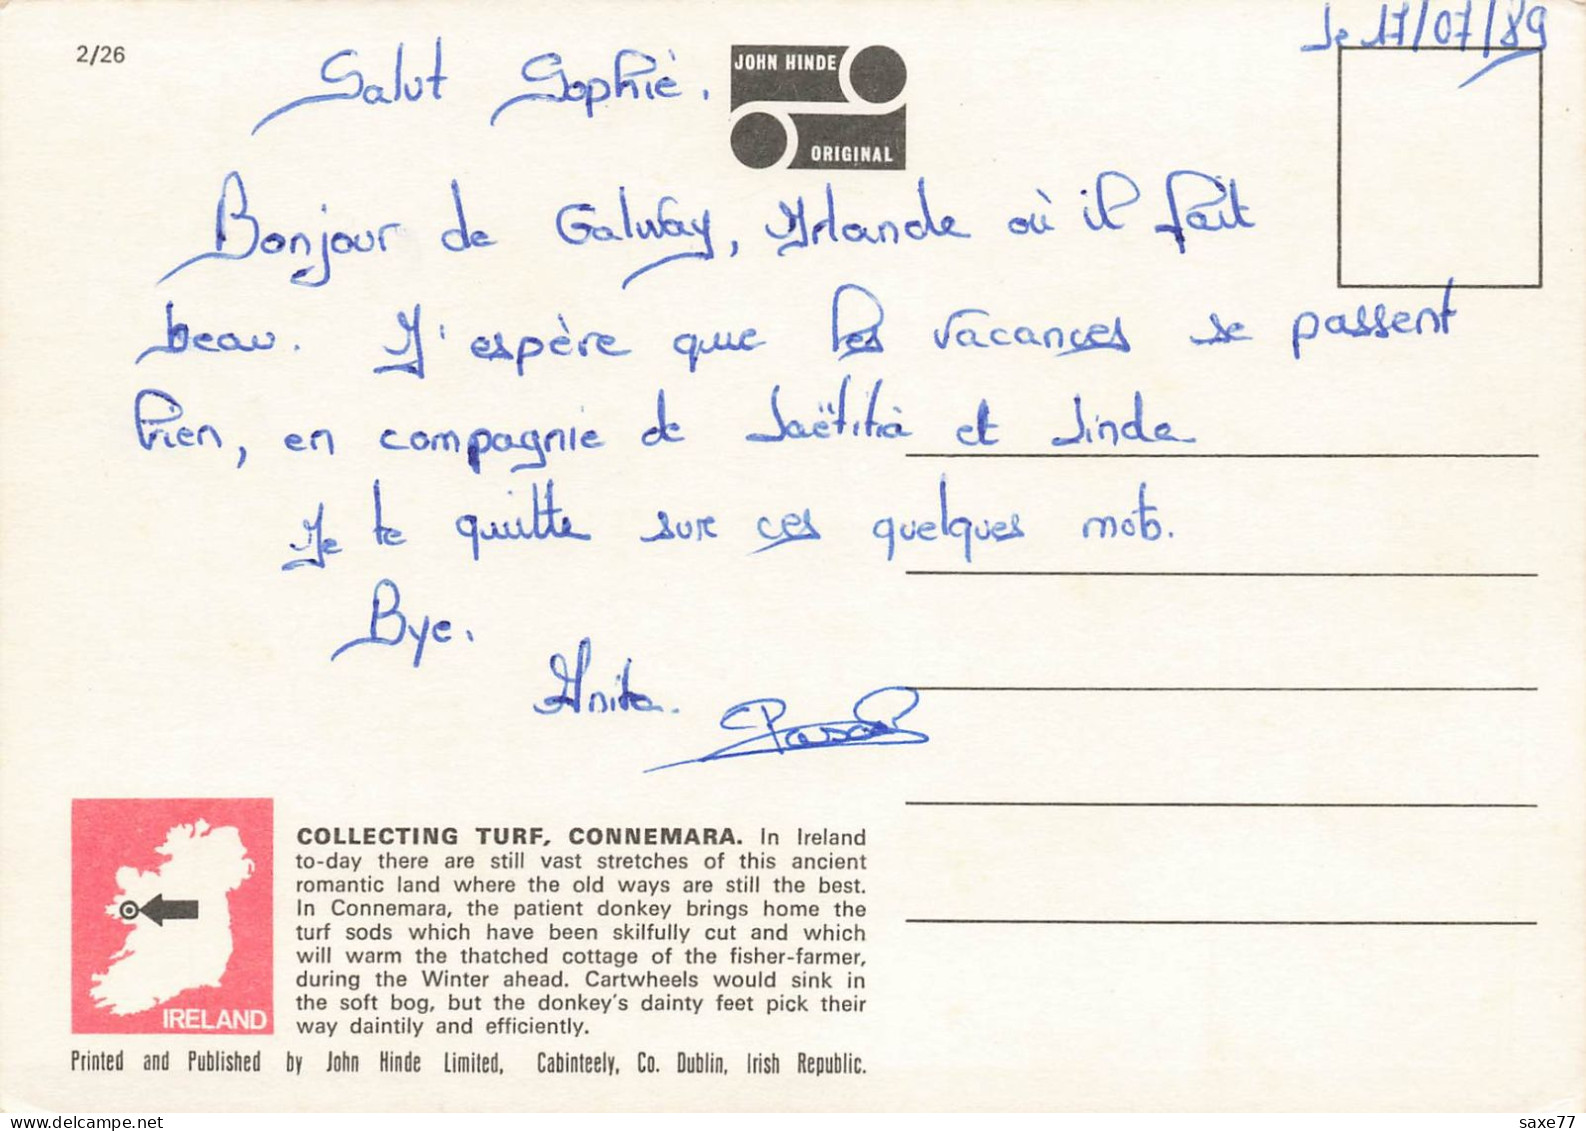 2/26
le 17/07/89
Salut Sophie.
JOHN HINDE
ORIGINAL
Bonjour de Galway, Irlande où il fait
beau. J'espère que les vacances se passent
bien, en compagnie de Laëtitia et Linda
Je te quitte sur ces quelques mots.
Bye.
Anita.
Pascal
COLLECTING TURF, CONNEMARA. In Ireland
to-day there are still vast stretches of this ancient
romantic land where the old ways are still the best.
In Connemara, the patient donkey brings home the
turf sods which have been skilfully cut and which
will warm the thatched cottage of the fisher-farmer,
during the Winter ahead. Cartwheels would sink in
the soft bog, but the donkey's dainty feet pick their
way daintily and efficiently.
IRELAND
Printed and Published by John Hinde Limited, Cabinteely, Co. Dublin, Irish Republic.
saxe77